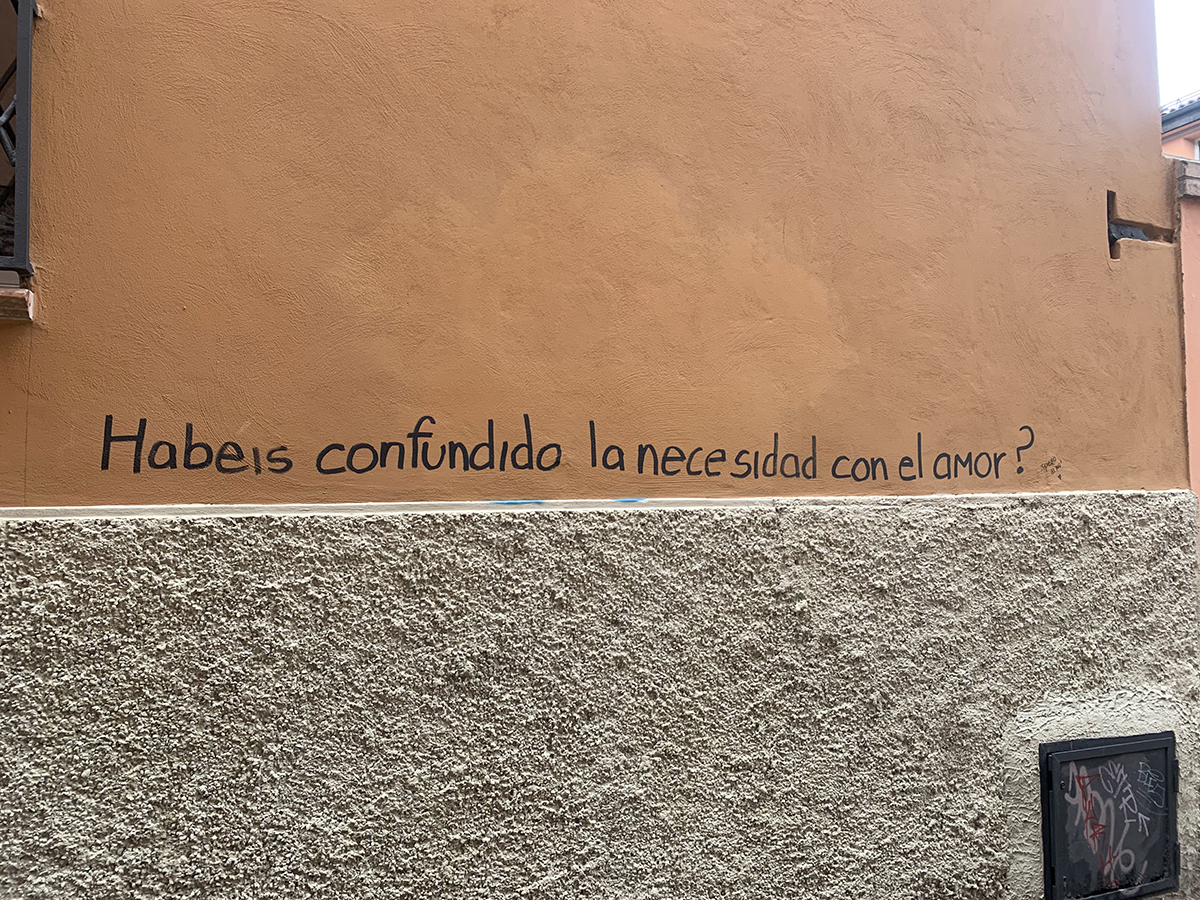 Habeis confundido la necesidad con el amor?